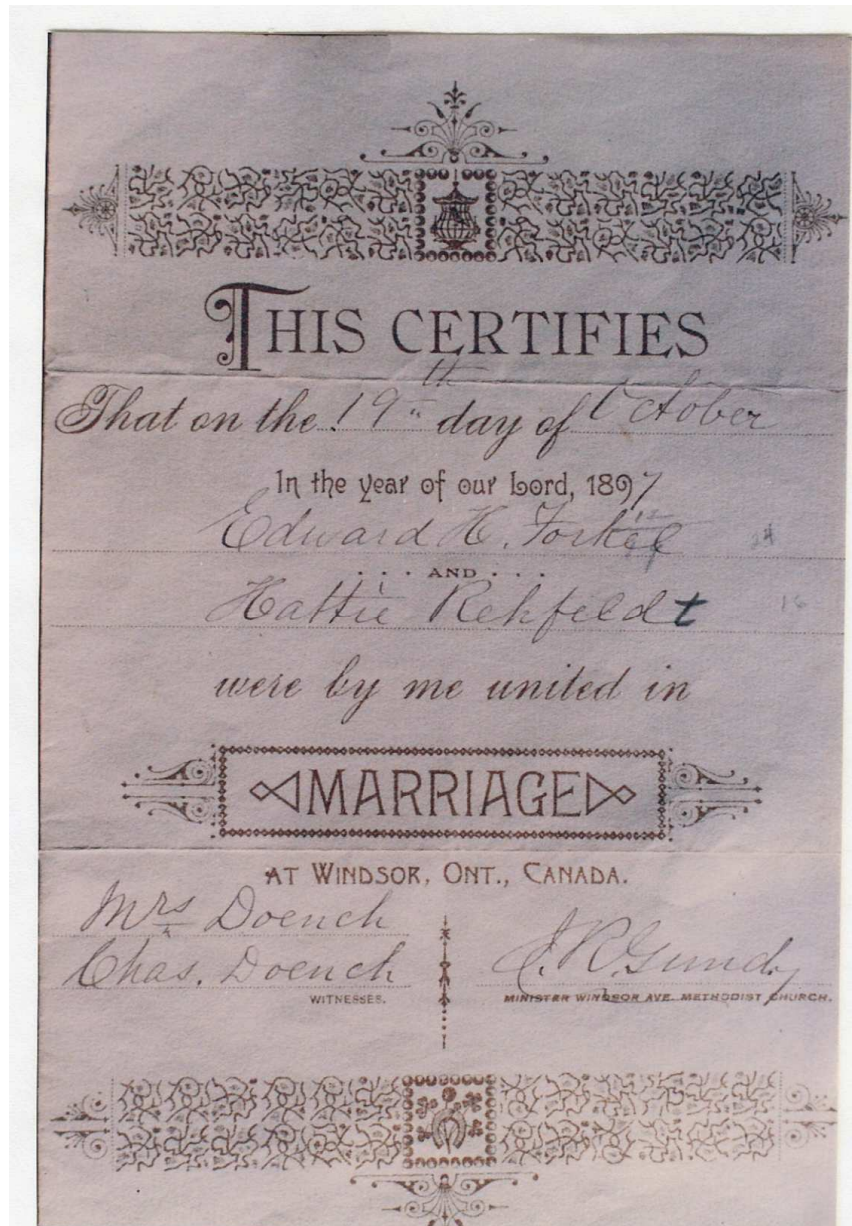 THIS CERTIFIES
That on the 19th day of October
In the year of our Lord, 1897
Edward H. 24
AND
Hattie Rehfeldt 16
were by me united in
MARRIAGE
AT WINDSOR, ONT., CANADA.
Mrs Doench
Chas. Doench
WITNESSES.
J. R. Gundy
MINISTER WINDSOR AVE. METHODIST CHURCH.